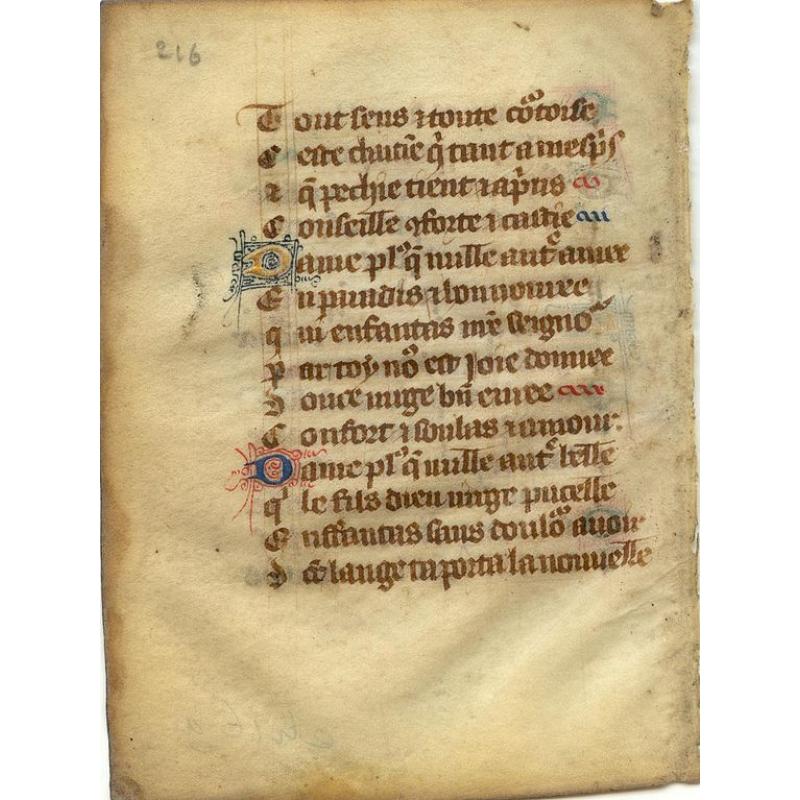 216
Tout sens ⁊ toute cotoisie
Ceste chaitie q̄ tant a mespͥs
a q̄ pechie tient ⁊ apͥris
Conseille ꝯforte ⁊ castie
Dame plꝰ q̄ nulle autͤ amee
En paradis ⁊ honnouree
qui enfantas nr̄e seignoᷣ
par toy noꝰ est joie donnee
Douce uirge bn̄ euree
Confort ⁊ soulas ⁊ amour.
Dame plꝰ q̄ nulle autͤ belle
qͥ le fils dieu uirge pucelle
Enffantas sans douloᷣ auoir
lange ta porta la nouuelle